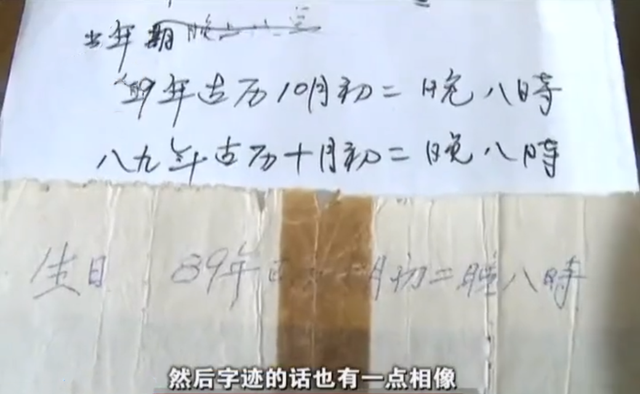 当年期
89年古历10月初二 晚八時
八九年古历十月初二 晚八時
生日 89年 月初二晚八時
然后字迹的话也有一点相像